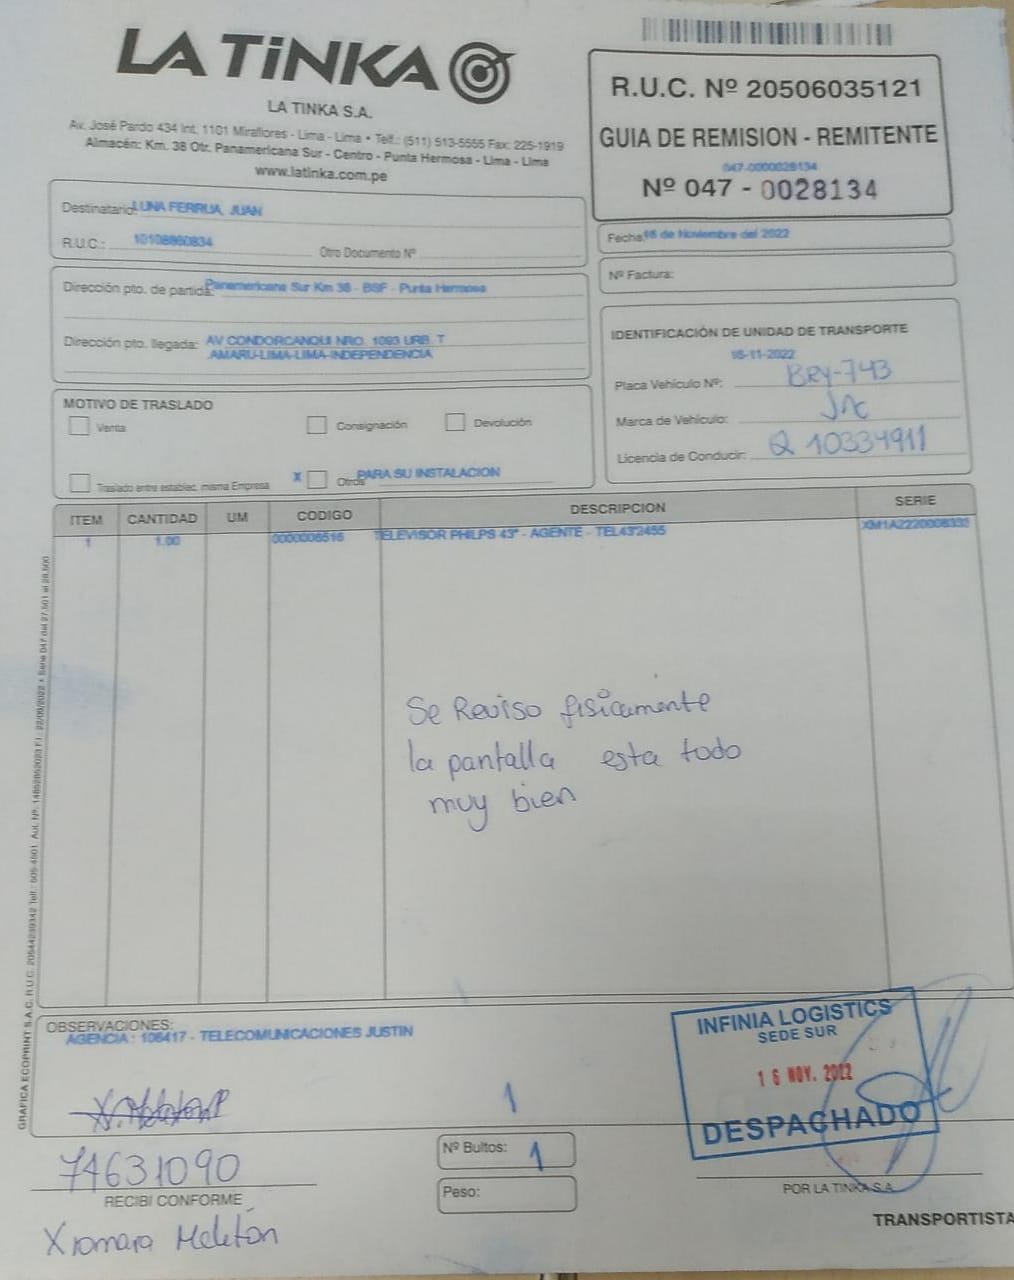 LA TiNKA
LA TINKA S.A.
Av. José Pardo 434 Int. 1101 Miraflores - Lima - Lima • Telf.: (511) 513-5555 Fax: 225-1919
Almacén: Km. 38 Otr. Panamericana Sur - Centro - Punta Hermosa - Lima - Lima
www.latinka.com.pe
R.U.C. Nº 20506035121
GUIA DE REMISION - REMITENTE
047-0000028134
Nº 047 - 0028134
Destinatario: LUNA FERRUA, JUAN
R.U.C.: 10108860834 Otro Documento Nº
Fecha: 16 de Noviembre del 2022
Nº Factura:
Dirección pto. de partida: Panamericana Sur Km 38 - BSF - Punta Hermosa
Dirección pto. llegada: AV CONDORCANQUI NRO. 1093 URB. T
AMARU-LIMA-LIMA-INDEPENDENCIA
IDENTIFICACIÓN DE UNIDAD DE TRANSPORTE
16-11-2022
Placa Vehículo Nº: BRY-743
Marca de Vehículo: JAC
Licencia de Conducir: Q 10334911
MOTIVO DE TRASLADO
Venta Consignación Devolución
Traslado entre establec. misma Empresa X Otros PARA SU INSTALACION
ITEM CANTIDAD UM CODIGO DESCRIPCION SERIE
1 1.00 0000006516 TELEVISOR PHILPS 43" - AGENTE - TEL432455 XM1A2220008333
Se Reviso fisicamente
la pantalla esta todo
muy bien
GRAFICA ECOPRINT S.A.C. R.U.C. 20544239342 Telf.: 505-4501 Aut. Nº. 14852852023 F.I.: 22/09/2022 • Serie 047 del 27,501 al 28,500
OBSERVACIONES:
AGENCIA : 106417 - TELECOMUNICACIONES JUSTIN
1
INFINIA LOGISTICS
SEDE SUR
16 NOV. 2022
DESPACHADO
X.MeletonP
74631090
RECIBI CONFORME
Xiomara Meletón
Nº Bultos: 1
Peso:
POR LA TINKA S.A.
TRANSPORTISTA